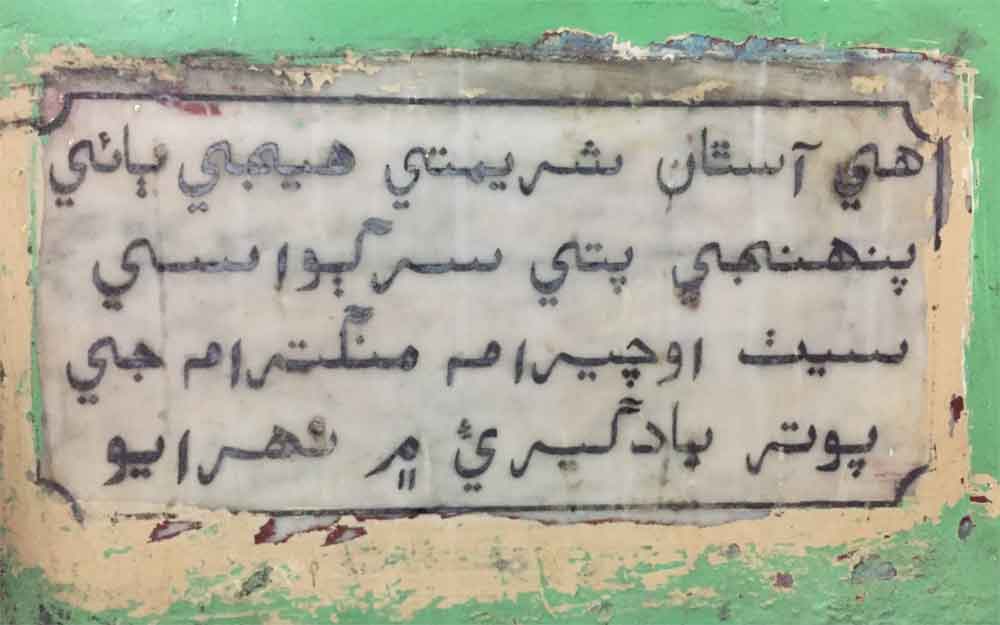 هي آستان شريمتي هيمجي ٻائي
پنهنجي پتي سرڳواسي
سيٺ اوچيرام منگترام جي
پوتر يادگيريءَ ۾ ٺهرايو